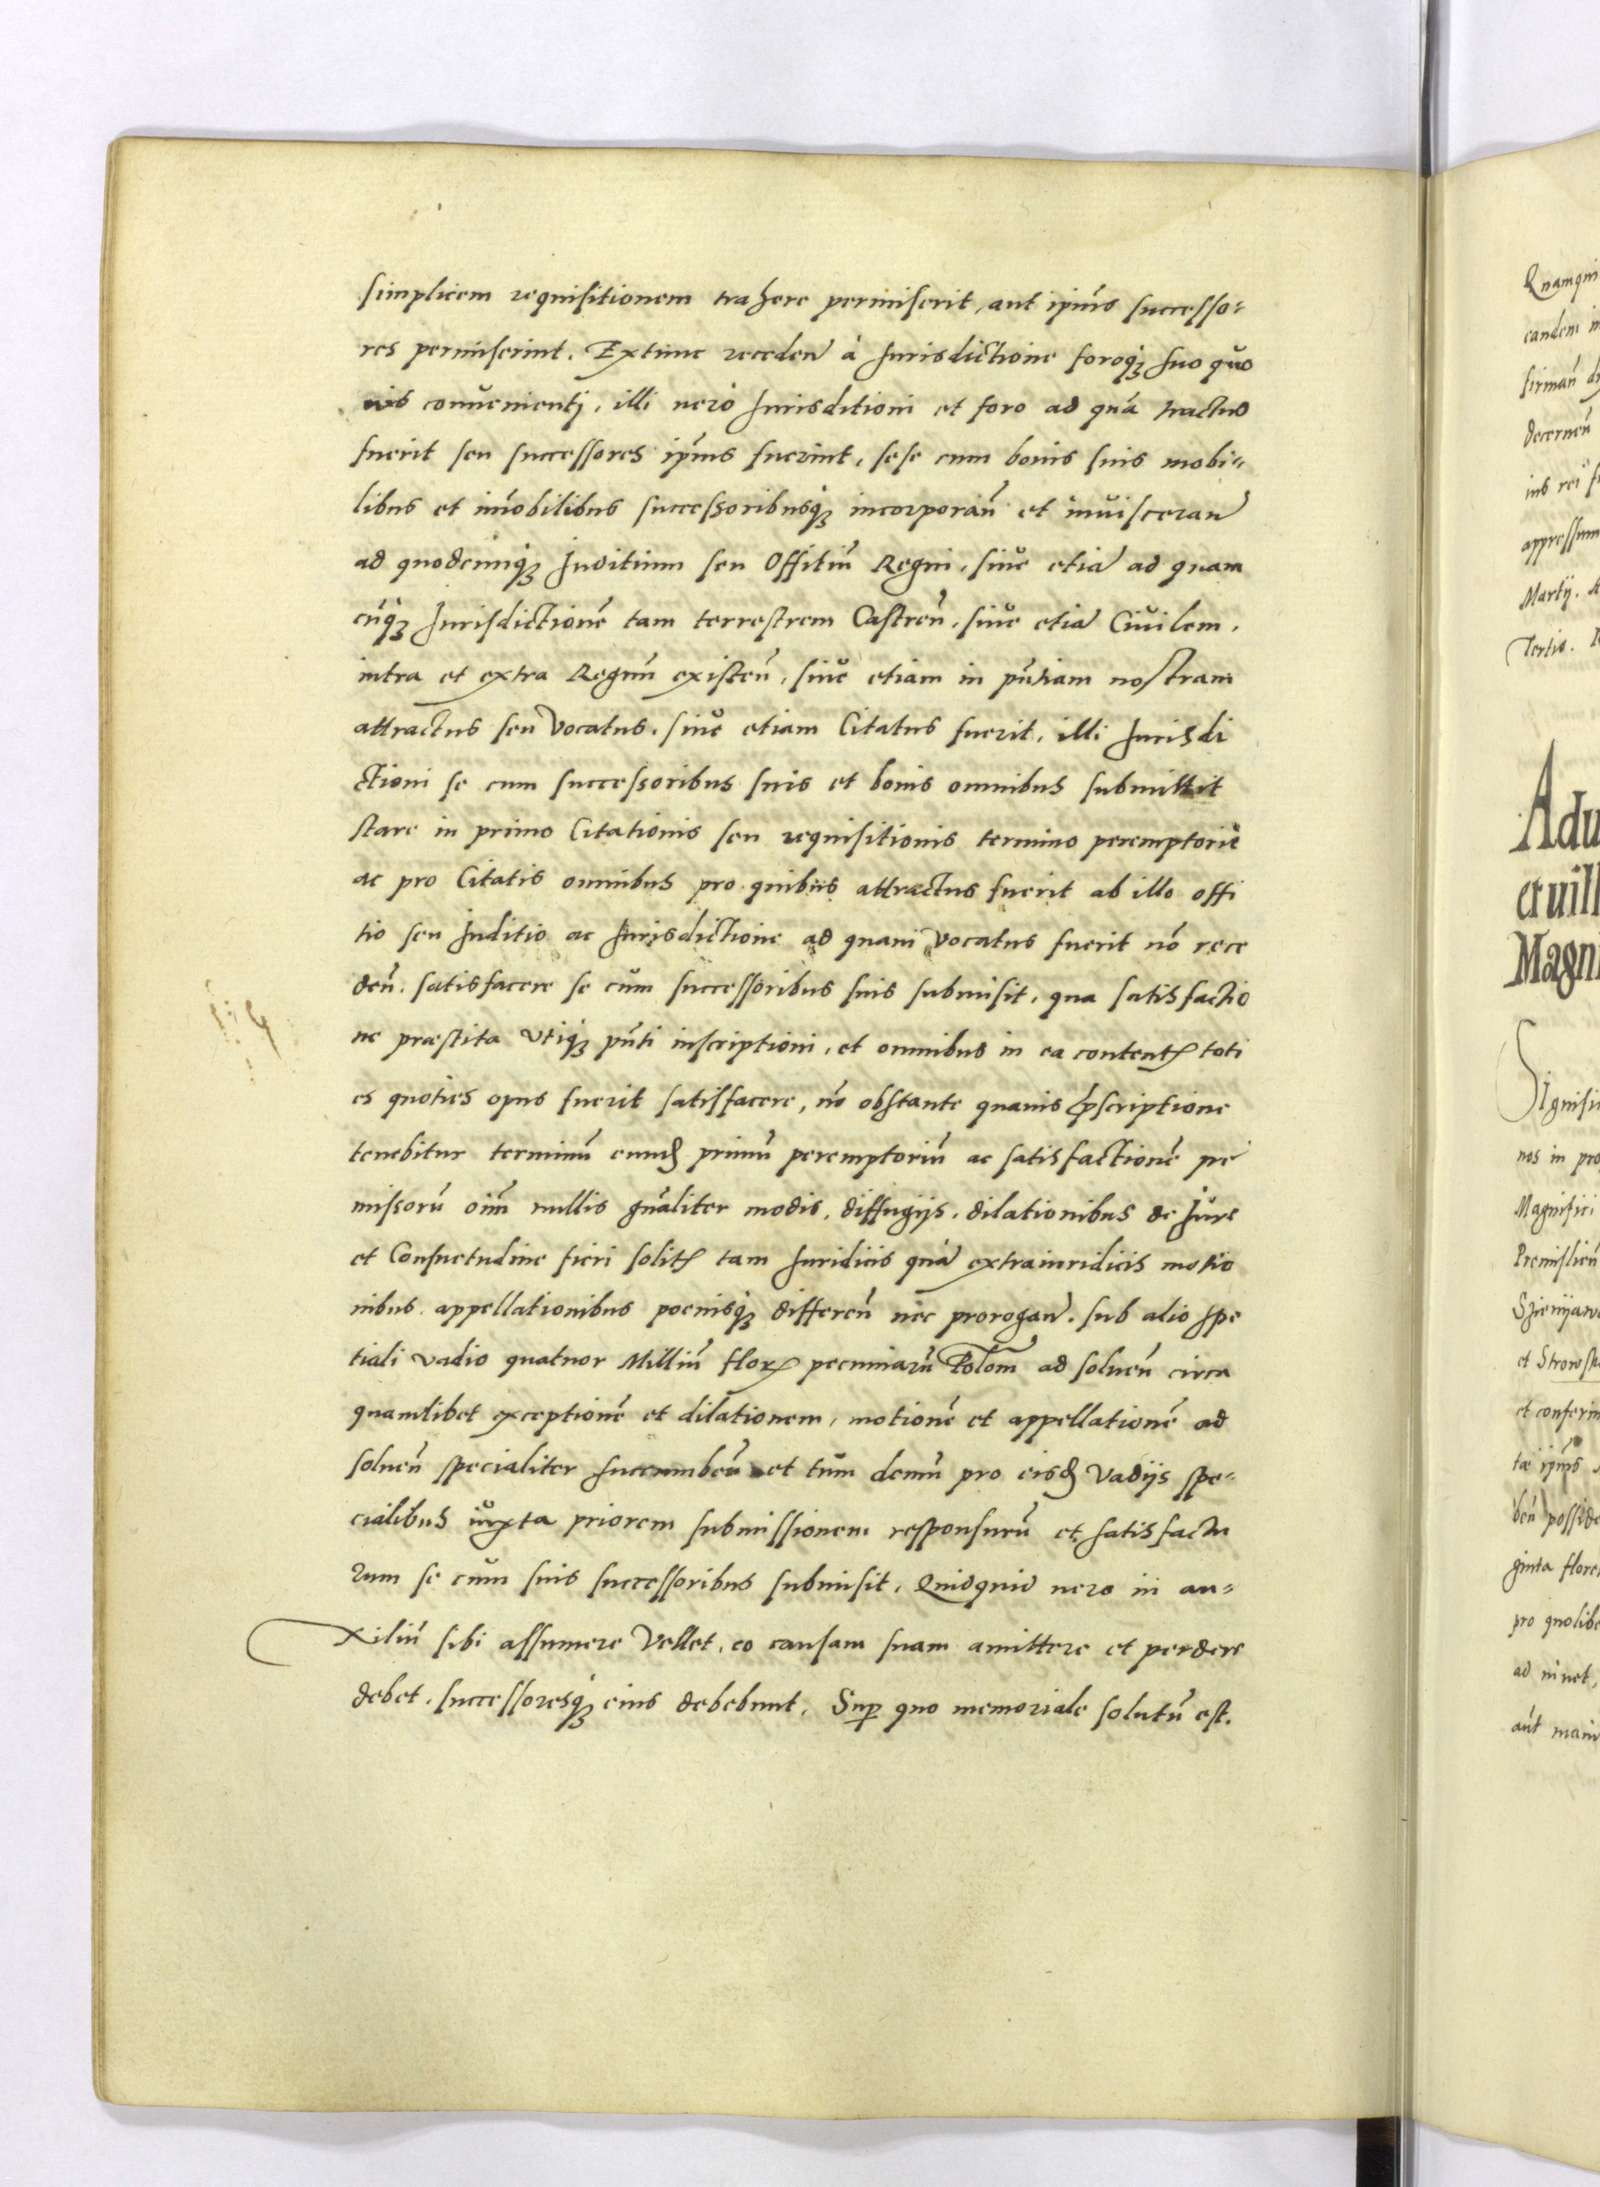 simplicem requisitionem trahere permiserit, aut ipius successo-
res permiserint. Extunc receden à Jurisdictione foroq suo quo
uis conuenienti, illi uero Jurisditioni et foro ad quã tractus
fuerit seu successores ipius fuerint, sese cum bonis suis mobi-
libus et imobilibus successoribusq incorporañ et inuisceran
ad quodcunq Juditium seu Offitiũ Regni, siue etiã ad quam
cũq Jurisdictionẽ tam terrestrem Castreñ, siue etiã Ciuilem,
intra et extra Regnũ existeñ, siue etiam in pñtiam nostram
attractus seu Vocatus, siue etiam Citatus fuerit, illi Jurisdi
ctioni se cum successoribus suis et bonis omnibus submittit
stare in primo Citationis seu requisitionis termino peremptoriè
ac pro Citatis omnibus pro quibus attractus fuerit ab illo offi
tio seu Juditio ac Jurisdictione ad quam Vocatus fuerit nõ rece
deñ, satisfacere se cum successoribus suis submisit, qua satisfactio
ne præstita Vtiq pñti inscriptioni, et omnibus in ea content toti
es quoties opus fuerit satisfacere, nõ obstante quauis pscriptione
tenebitur terminũ eund primũ peremptoriũ ac satisfactionẽ pre
missorũ oim nullis gñaliter modis, diffugijs, dilationibus de Jure
et Consuetudine fieri solit tam Juridicis quã extraiuridicis motio
nibus appellationibus poenisq differeñ nec prorogan. sub alio spe
tiali vadio quatuor Milliũ flor pecuniarũ Polom ad solueñ circa
quamlibet exceptionẽ et dilationem, motionẽ et appellationẽ ad
solueñ specialiter succumbeñ et tum demũ pro eisd Vadijs spe-
cialibus iuxta priorem submissionem responsurũ et satisfactu
rum se cum suis successoribus submisit, Quidquid uero in au-
xiliũ sibi assumere Vellet, eo causam suam amittere et perdere
debet, successoresq eius debebunt. Sup quo memoriale solutũ est.
Quamqui
eandem in
firmañ
decerneñ
ius rei
appressum
Martij.
Tertio.
Adu
et uill
Magni
Signifi
nos in pro
Magnifici
Premislieñ
et
et conferim
tæ ipius
beñ posside
ginta flore
pro quolibe
ad
aut